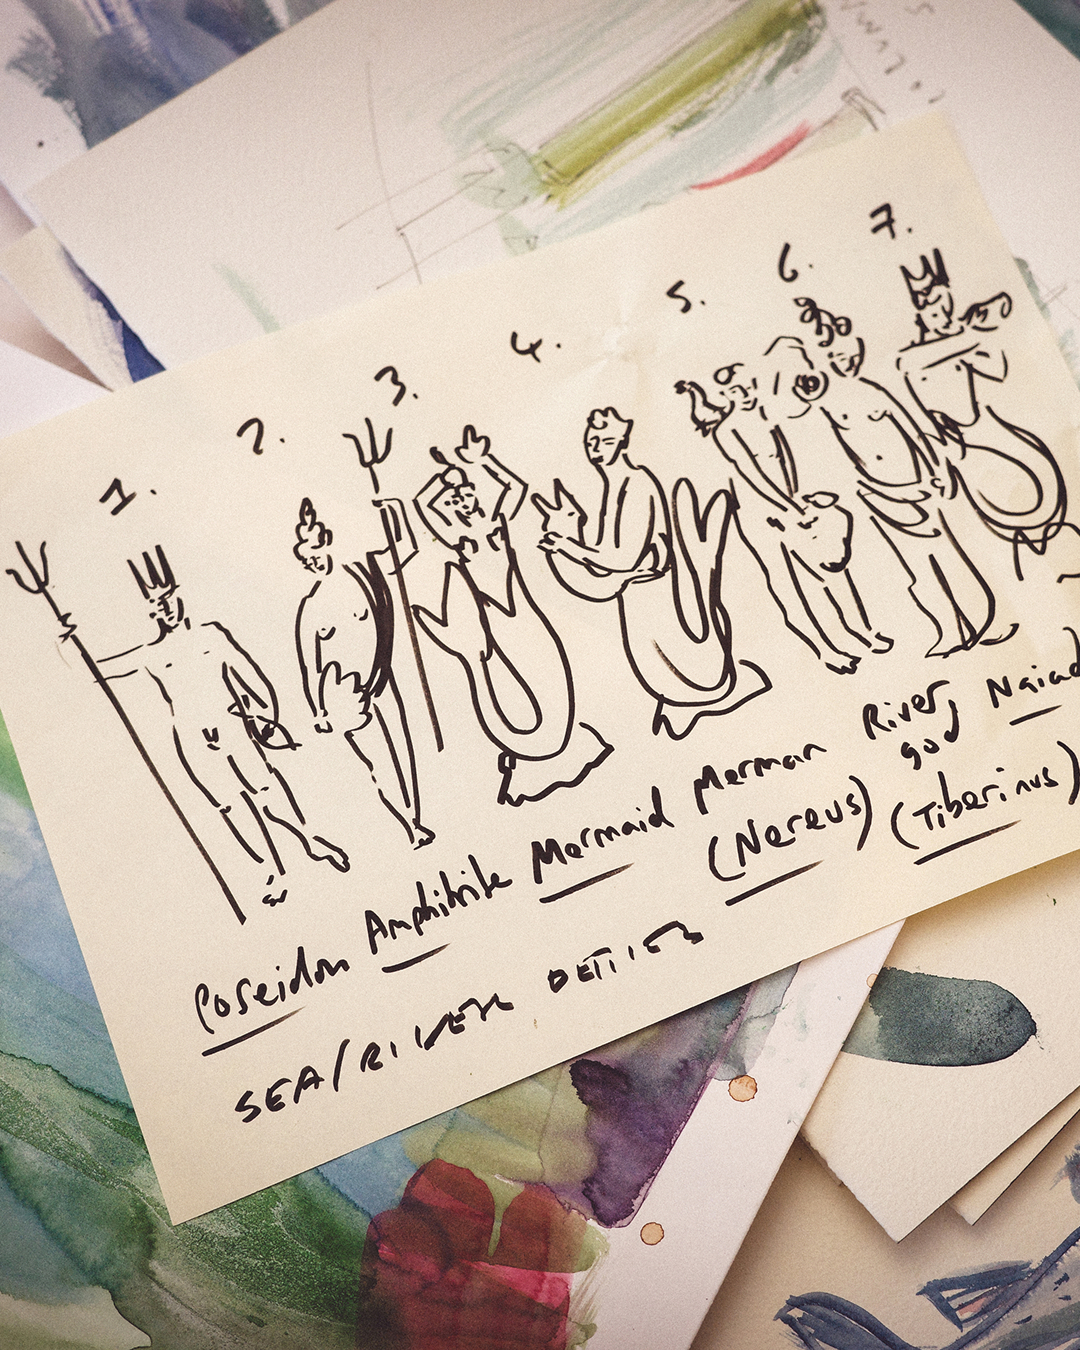 1. 2. 3. 4. 5. 6. 7.
Poseidon Amphitrite Mermaid Merman River god Naiad
(Nereus) (Tiberinus)
SEA/RIVER DETIES